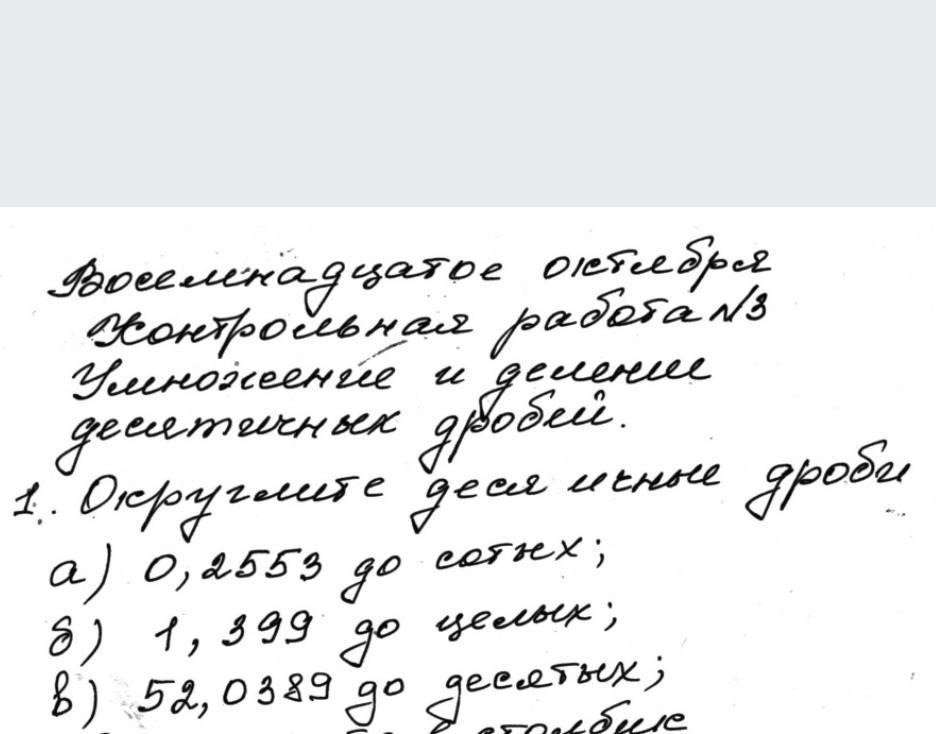 Восемнадцатое октября
Контрольная работа №3
Умножение и деление
десятичных дробей.
1. Округлите деся ичные дроби
а) 0,2553 до сотых;
б) 1,399 до целых;
в) 52,0389 до десятых;
в столбик